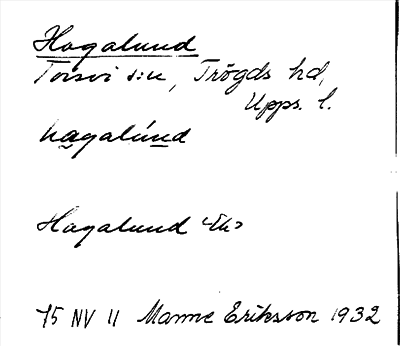 Hagalund
Torsvi s:n, Trögds hd,
Upps. l.
hagalúnd
Hagalund <Ek>
75 NV 11 Manne Eriksson 1932